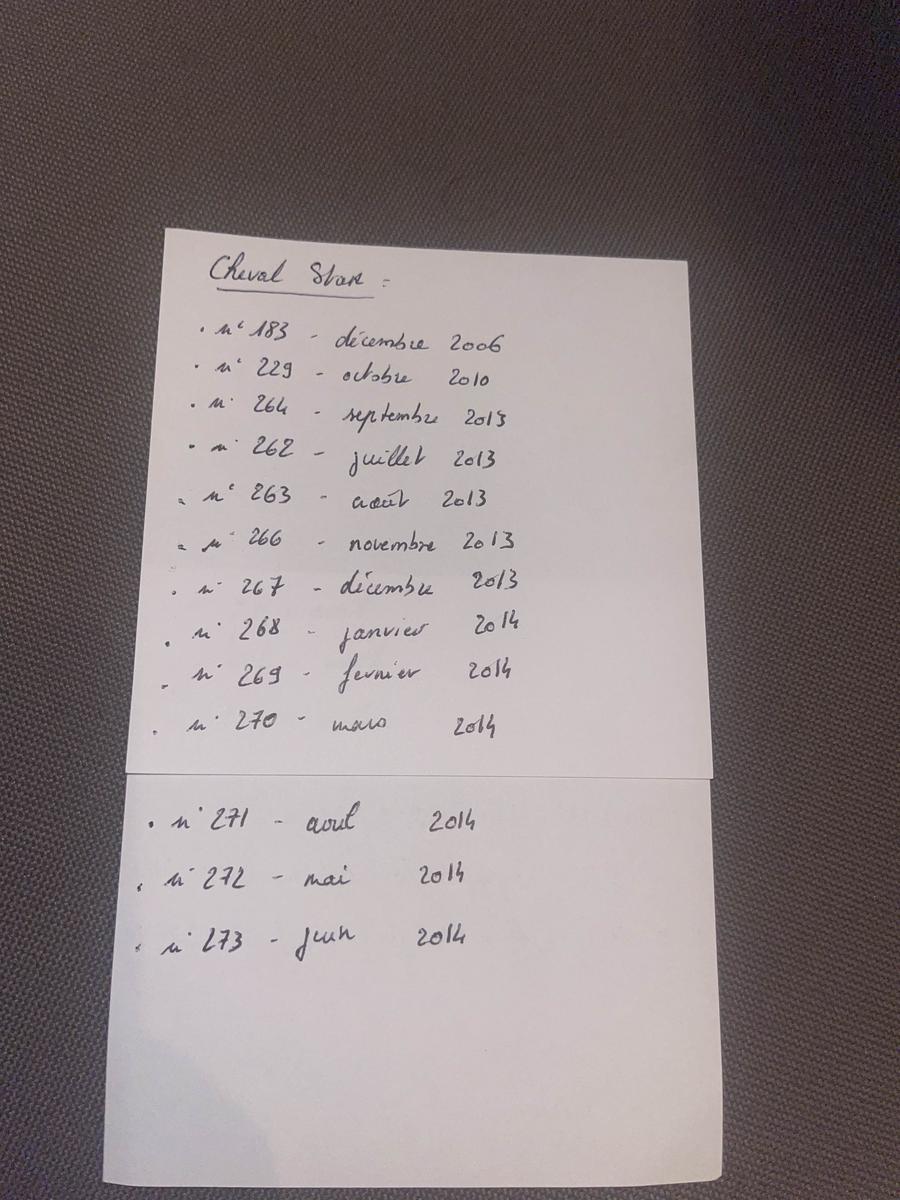 Cheval Star :
. n° 183 - décembre 2006
. n° 229 - octobre 2010
. n° 264 - septembre 2013
. n° 262 - juillet 2013
. n° 263 - août 2013
. n° 266 - novembre 2013
. n° 267 - décembre 2013
. n° 268 - janvier 2014
. n° 269 - fevrier 2014
. n° 270 - mars 2014
. n° 271 - avril 2014
. n° 272 - mai 2014
. n° 273 - juin 2014